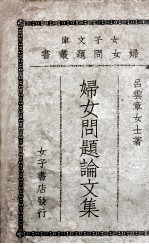 女子文庫
婦女問題叢書
呂雲章女士著
婦女問題論文集
女子書店發行